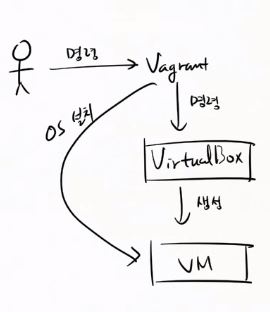 명령
Vagrant
명령
OS 설치
VirtualBox
생성
VM